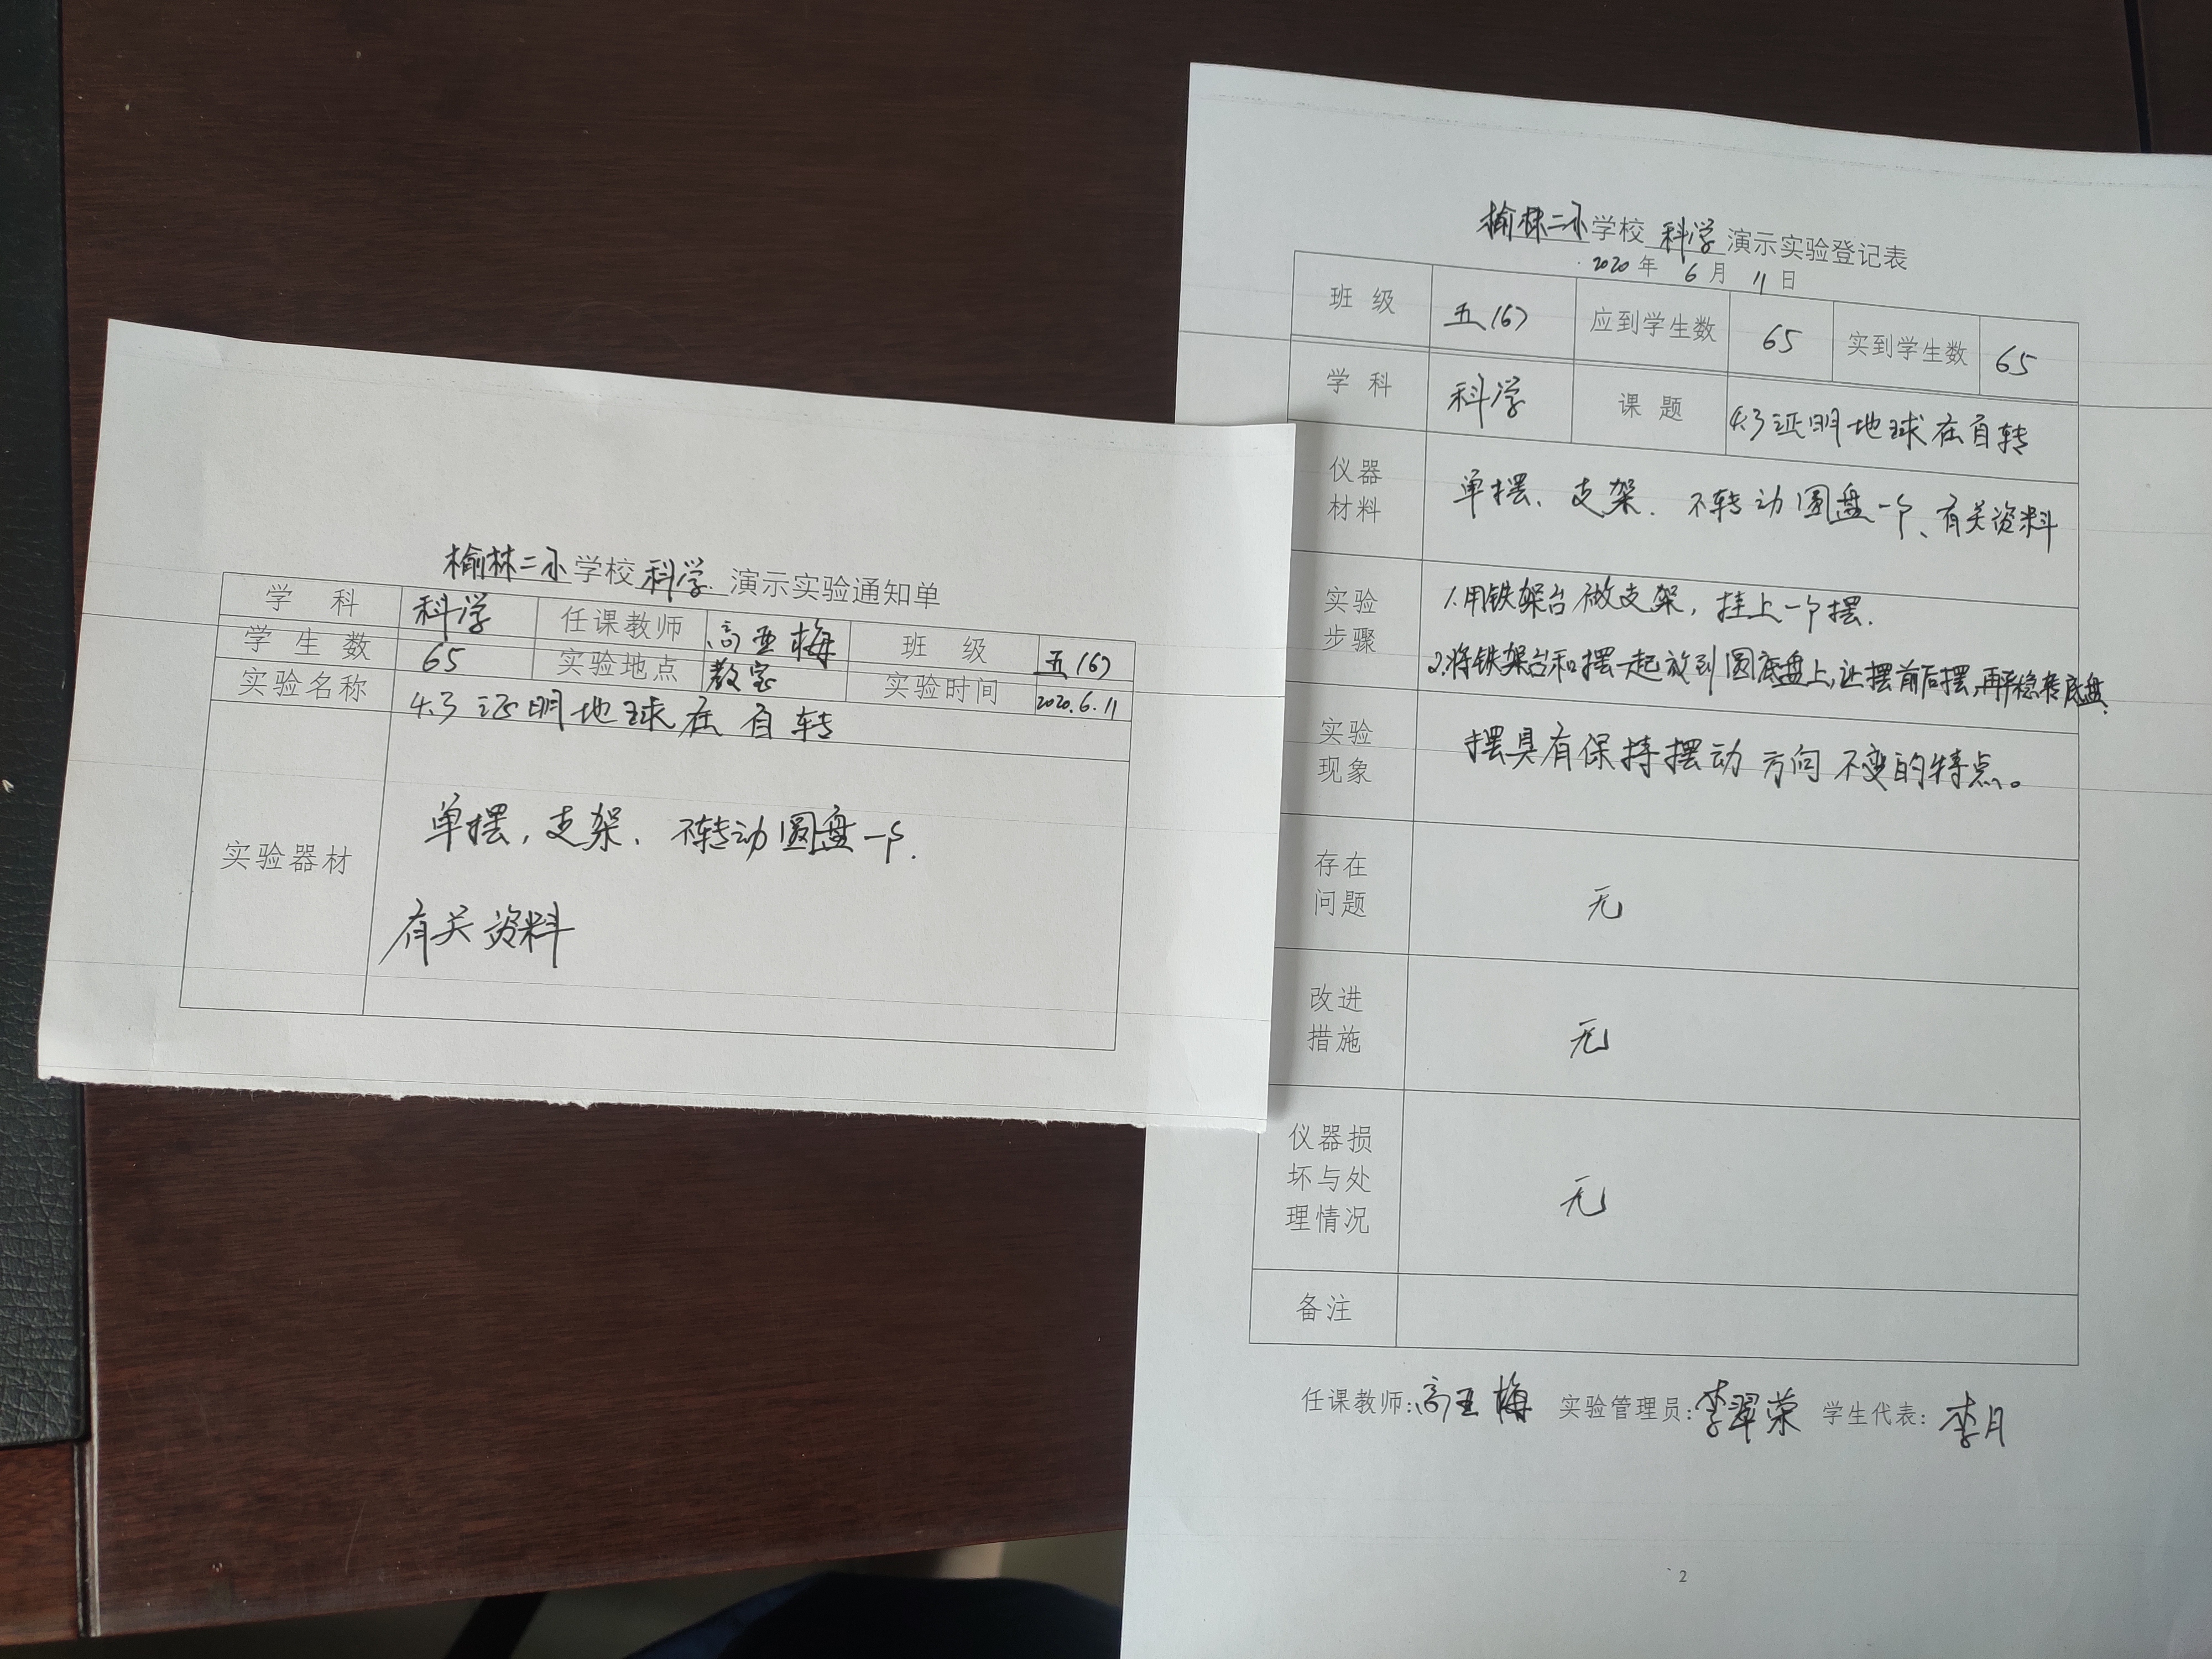 榆林二小学校 科学 演示实验通知单
学 科 科学 任课教师 高亚梅 班 级 五(6)
学 生 数 65 实验地点 教室 实验时间 2020.6.11
实验名称 4.3 证明地球在自转
实验器材 单摆,支架、不转动圆盘一个.
有关资料
榆林二小学校 科学 演示实验登记表
2020 年 6 月 11 日
班 级 五(6) 应到学生数 65 实到学生数 65
学 科 科学 课 题 4.3证明地球在自转
仪器
材料
单摆、支架、不转动圆盘一个、有关资料
实验
步骤
1.用铁架台做支架,挂上一个摆.
2.将铁架台和摆一起放到圆底盘上,让摆前后摆,再平稳转底盘.
实验
现象
摆具有保持摆动方向不变的特点。
存在
问题
无
改进
措施
无
仪器损
坏与处
理情况
无
备注
任课教师:高亚梅 实验管理员:李翠荣 学生代表:李月
2